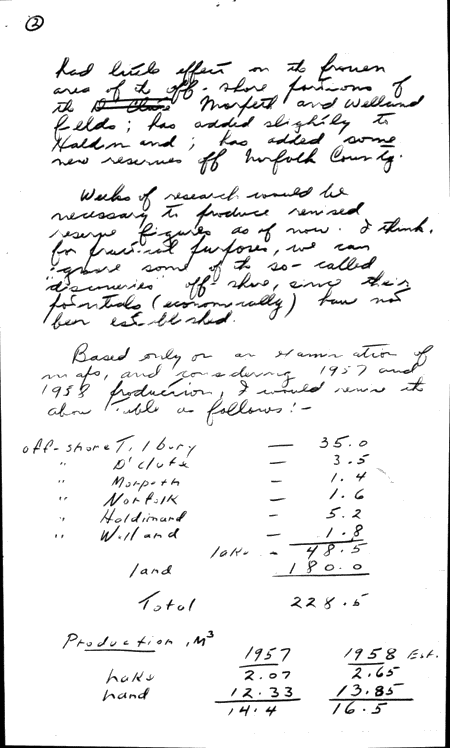 2
had little effect on the proven
area of the off-shore portions of
the D'Clute Morpeth and Welland
fields; has added slightly to
Haldimand; has added some
new reserves off Norfolk County.
Weeks of research would be
necessary to produce revised
reserve figures as of now. I think,
for practical purposes, we can
ignore some of the so-called
discoveries off shore, since their
potentials (economically) have not
been established.
Based only on an examination of
maps, and considering 1957 and
1958 production, I would revise the
above table as follows:-
off-shore Tilbury — 35.0
" D'clute — 3.5
" Morpeth — 1.4
" Norfolk — 1.6
" Haldimand — 5.2
" Welland — 1.8
lake - 48.5
land 180.0
Total 228.5
Production, M3
1957 1958 Est.
Lake 2.07 2.65
Land 12.33 13.85
14.4 16.5